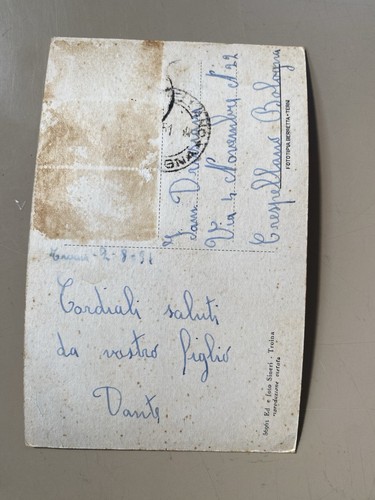 2-8-51
Cordiali saluti
da vostro figlio
Dante
Fam.
Via 4 Novembre N. 22
Crespellano Bologna
FOTOTIPIA BERRETTA - TERNI
Ed. e Inis Sineri - Troina
riproduzione vietata